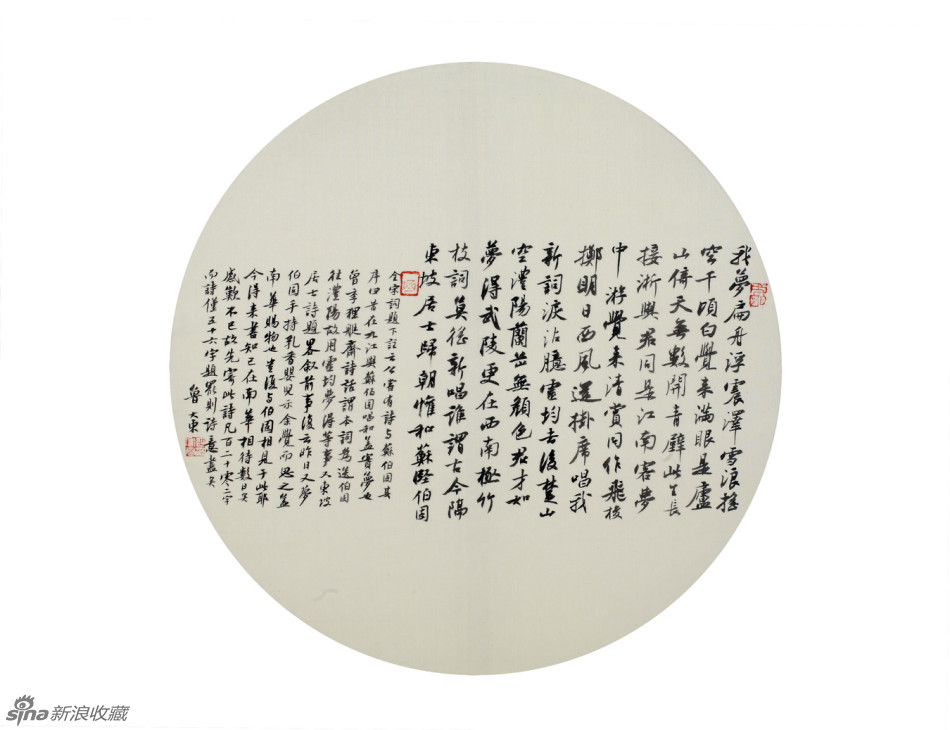 我夢扁舟浮震澤雪浪搖
空千頃白覺來滿眼是廬
山倚天無數開青壁此生長
接淅與君同是江南客夢
中游覺來清賞同作飛梭
擲明日西風還掛席唱我
新詞淚沾臆靈均去後楚山
空澧陽蘭芷無顏色君才如
夢得武陵更在西南極竹
枝詞莫徭新唱誰謂古今隔
東坡居士歸朝懽和蘇堅伯固
全宋詞題下註云公嘗有詩与蘇伯固其
序曰昔在九江與蘇伯固唱和其實夢也
曾季貍艇齋詩話謂本詞為送伯固
往澧陽故用靈均夢得等事又東坡
居士詩題畧叙前事後云昨日又夢
伯固手持乳香嬰兒示余覺而思之蓋
南華賜物也豈復与伯固相見于此耶
今得來書知已在南華相待數日矣
感歎不已故先寄此詩凡百二十零二字
而詩僅五十六字題畧則詩意盡矣
魯大東
sina新浪收藏